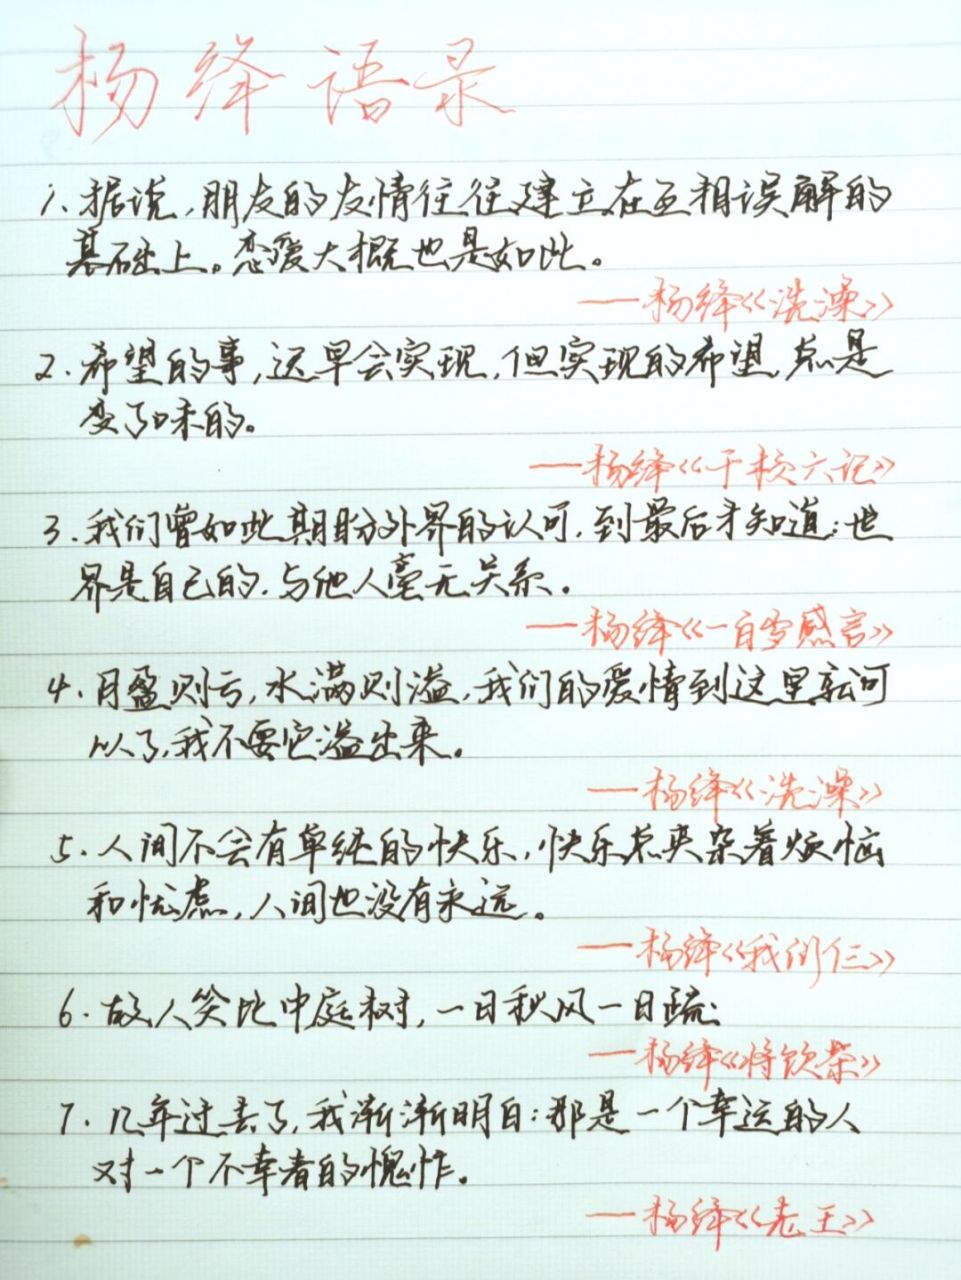 杨绛语录
1.据说,朋友的友情往往建立在互相误解的
基础上。恋爱大概也是如此。
——杨绛《洗澡》
2.希望的事,迟早会实现,但实现的希望,总是
变了味的。
——杨绛《干校六记》
3.我们曾如此期盼外界的认可,到最后才知道:世
界是自己的.与他人毫无关系。
——杨绛《一百岁感言》
4.月盈则亏,水满则溢,我们的爱情到这里就可
以了,我不要它溢出来。
——杨绛《洗澡》
5.人间不会有单纯的快乐,快乐总夹杂着烦恼
和忧虑,人间也没有永远。
——杨绛《我们仨》
6.故人笑比中庭树,一日秋风一日疏;
——杨绛《将饮茶》
7.几年过去了,我渐渐明白:那是一个幸运的人
对一个不幸者的愧怍。
——杨绛《老王》